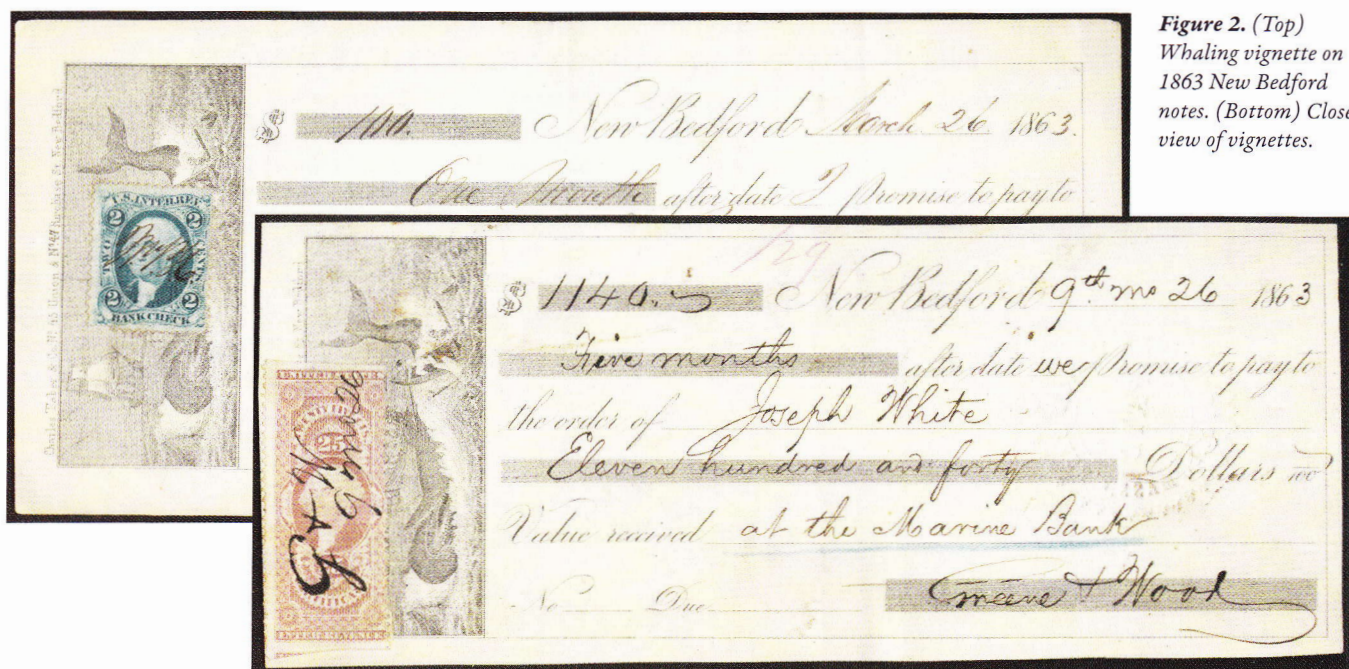 Figure 2. (Top)
Whaling vignette on
1863 New Bedford
notes. (Bottom) Close
view of vignettes.
$ 100. New Bedford March 26 1863.
One Month after date I promise to pay to
Charles Taber & Co. New Bedford
U.S. INTER. REV.
2 2
TWO CENTS
2 2
BANK CHECK
$ 1140. New Bedford 9th mo 26 1863
Five months after date we promise to pay to
the order of Joseph White
Eleven hundred and forty Dollars
Value received at the Marine Bank
No Due
& Wood
UNITED STATES
25
INTER. REVENUE